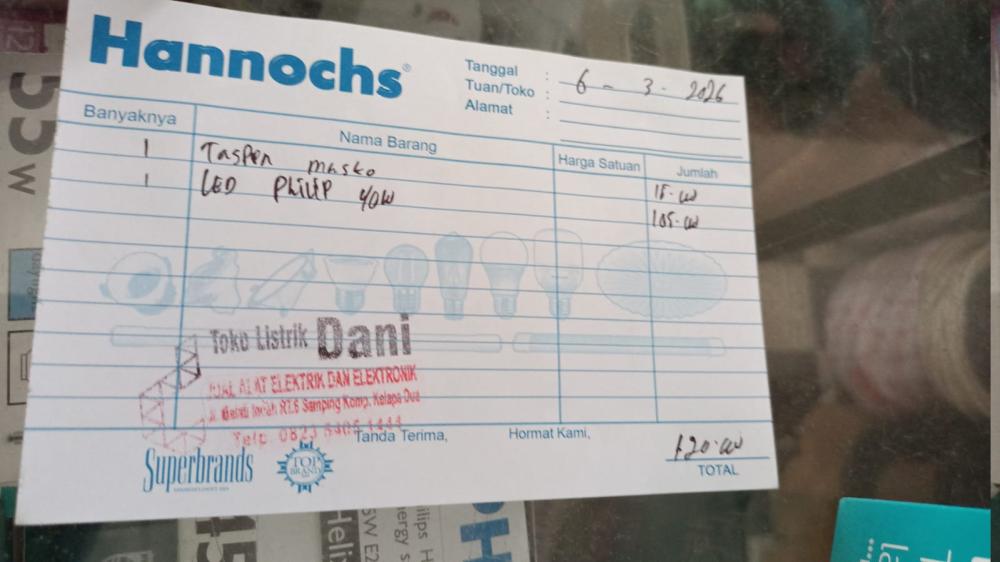 Hannochs®
Tanggal : 6 - 3 - 2026
Tuan/Toko :
Alamat :
Banyaknya Nama Barang Harga Satuan Jumlah
1 Taspen masko 15.00
1 LED PhiliP 40W 105.00
Toko Listrik Dani
JUAL ALAT ELEKTRIK DAN ELEKTRONIK
RT.6 Samping Komp. Kelapa Dua
Telp. 0823
Tanda Terima, Hormat Kami,
120.00
TOTAL
Superbrands
TOP BRAND
55W
Helix